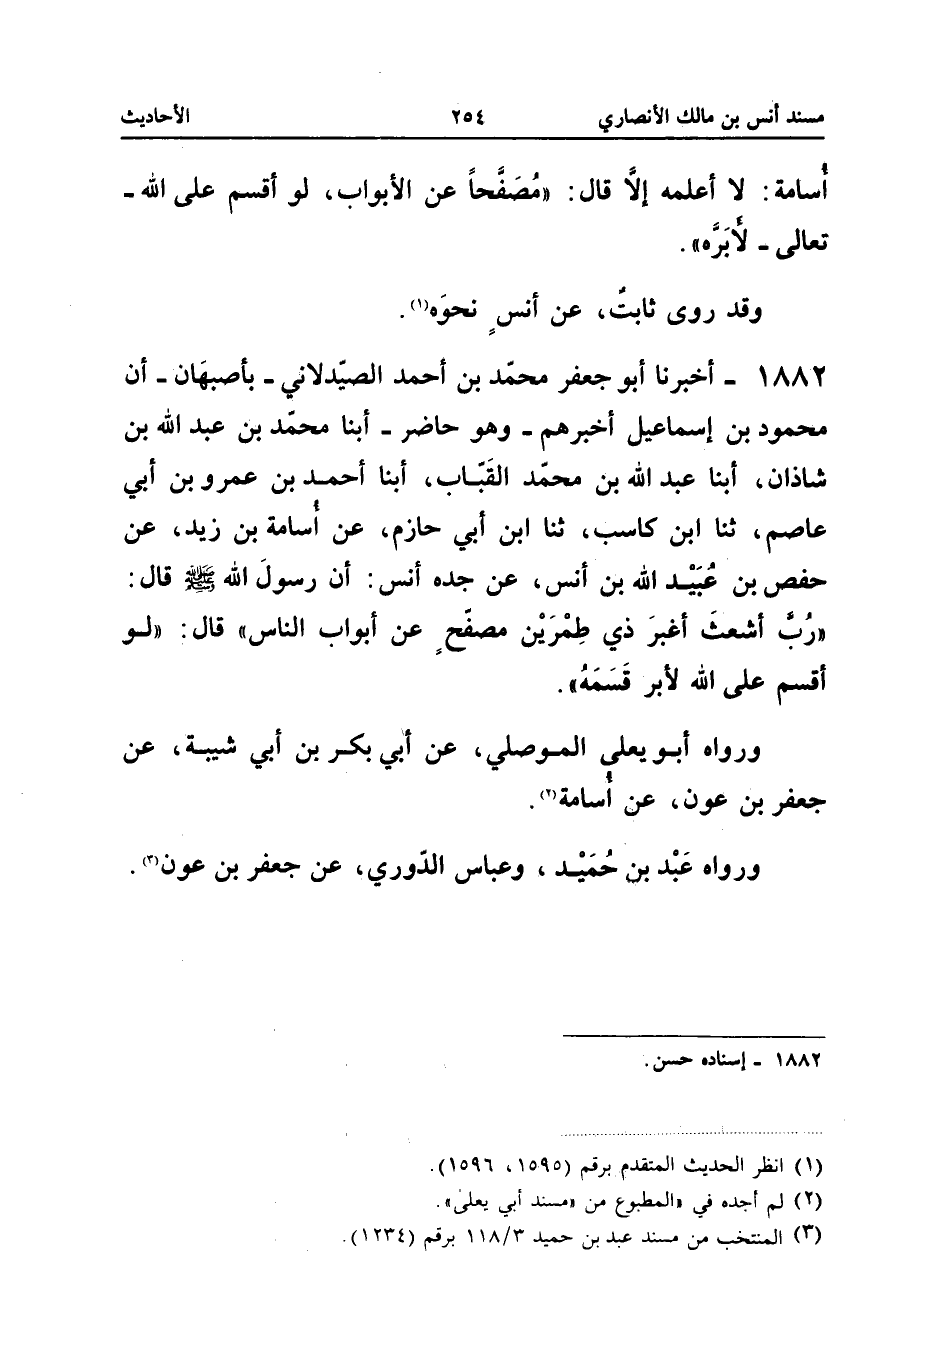 مسند أنس بن مالك الأنصاري ٢٥٤ الأحاديث
أُسامة: لا أعلمه إلَّا قال: «مُصَفَّحاً عن الأبواب، لو أقسم على الله ـ
تعالى ـ لأَبَرَّه».
وقد روى ثابتٌ، عن أنسٍ نحوَه(١).
١٨٨٢ ـ أخبرنا أبو جعفر محمّد بن أحمد الصيّدلاني ـ بأصبهَان ـ أن
محمود بن إسماعيل أخبرهم ـ وهو حاضر ـ أبنا محمّد بن عبد الله بن
شاذان، أبنا عبد الله بن محمّد القَبّاب، أبنا أحمد بن عمرو بن أبي
عاصم، ثنا ابن كاسب، ثنا ابن أبي حازم، عن أُسامة بن زيد، عن
حفص بن عُبَيْد الله بن أنس، عن جده أنس: أن رسولَ الله ﷺ قال:
«رُبَّ أشعثَ أغبرَ ذي طِمْرَيْن مصفّحٍ عن أبواب الناس» قال: «لو
أقسم على الله لأبر قَسَمَهُ».
ورواه أبو يعلى الموصلي، عن أبي بكر بن أبي شيبة، عن
جعفر بن عون، عن أُسامة(٢).
ورواه عَبْد بن حُمَيْد، وعباس الدّوري، عن جعفر بن عون(٣).
١٨٨٢ ـ إسناده حسن.
(١) انظر الحديث المتقدم برقم (١٥٩٥، ١٥٩٦).
(٢) لم أجده في «المطبوع من «مسند أبي يعلىٰ».
(٣) المنتخب من مسند عبد بن حميد ١١٨/٣ برقم (١٢٣٤).